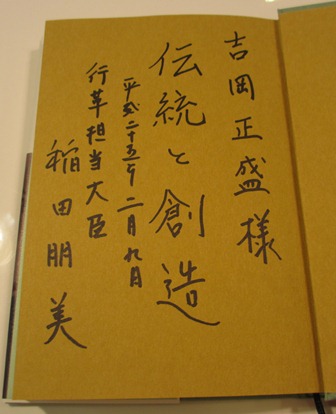 吉岡正盛様
伝統と創造
平成二十五年二月九日
行革担当大臣
稲田朋美